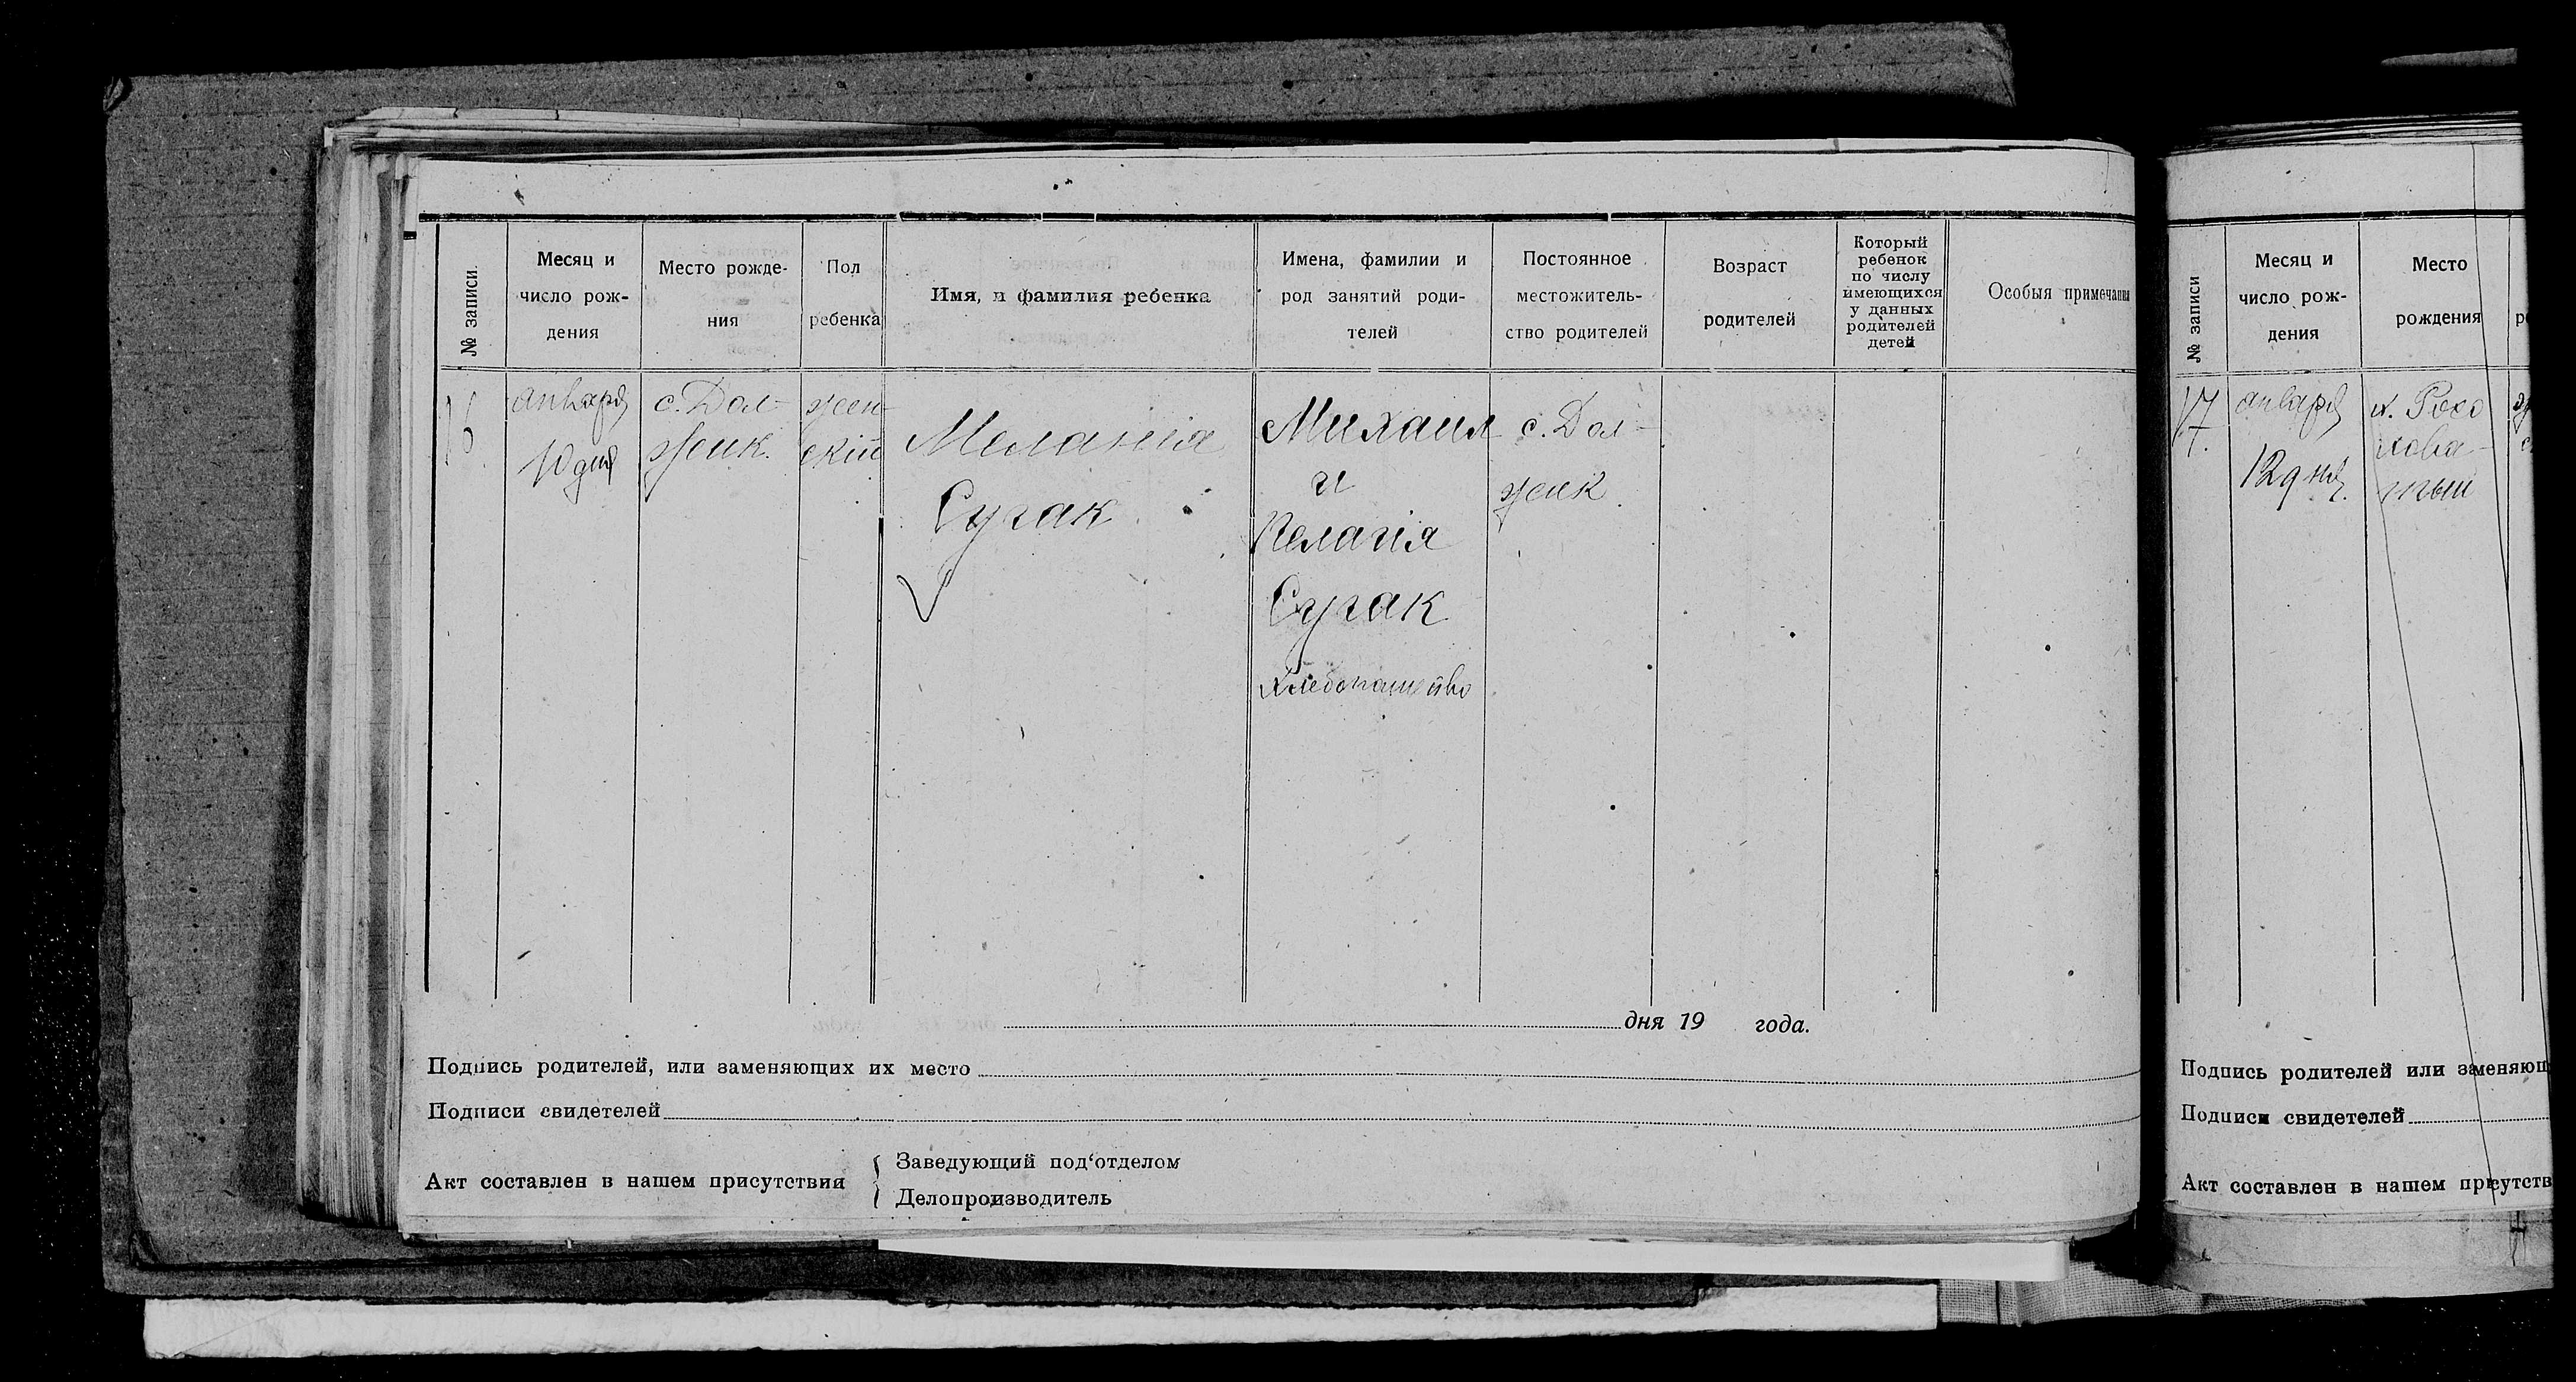 № записи.
Месяц и
число рож-
дения
Место рожде-
ния
Пол
ребенка
Имя, и фамилия ребенка
Имена, фамилии и
род занятий роди-
телей
Постоянное
местожитель-
ство родителей
Возраст
родителей
Который
ребенок
по числу
имеющихся
у данных
родителей
детей
Особыя примечания
16
января
10 дня
с. Дол-
жик.
жен-
скій
Меланія
Сугак
Михаил
и
Пелагія
Сугак
с. Дол-
жик
дня 19 года.
Подпись родителей, или заменяющих их место
Подписи свидетелей
Акт составлен в нашем присутствии
Заведующий под‘отделом
Делопроизводитель
№ записи
Месяц и
число рож-
дения
Место
рождения
17.
января
12 дня.
Подпись родителей или заменяющ
Подписи свидетелей
Акт составлен в нашем присутств